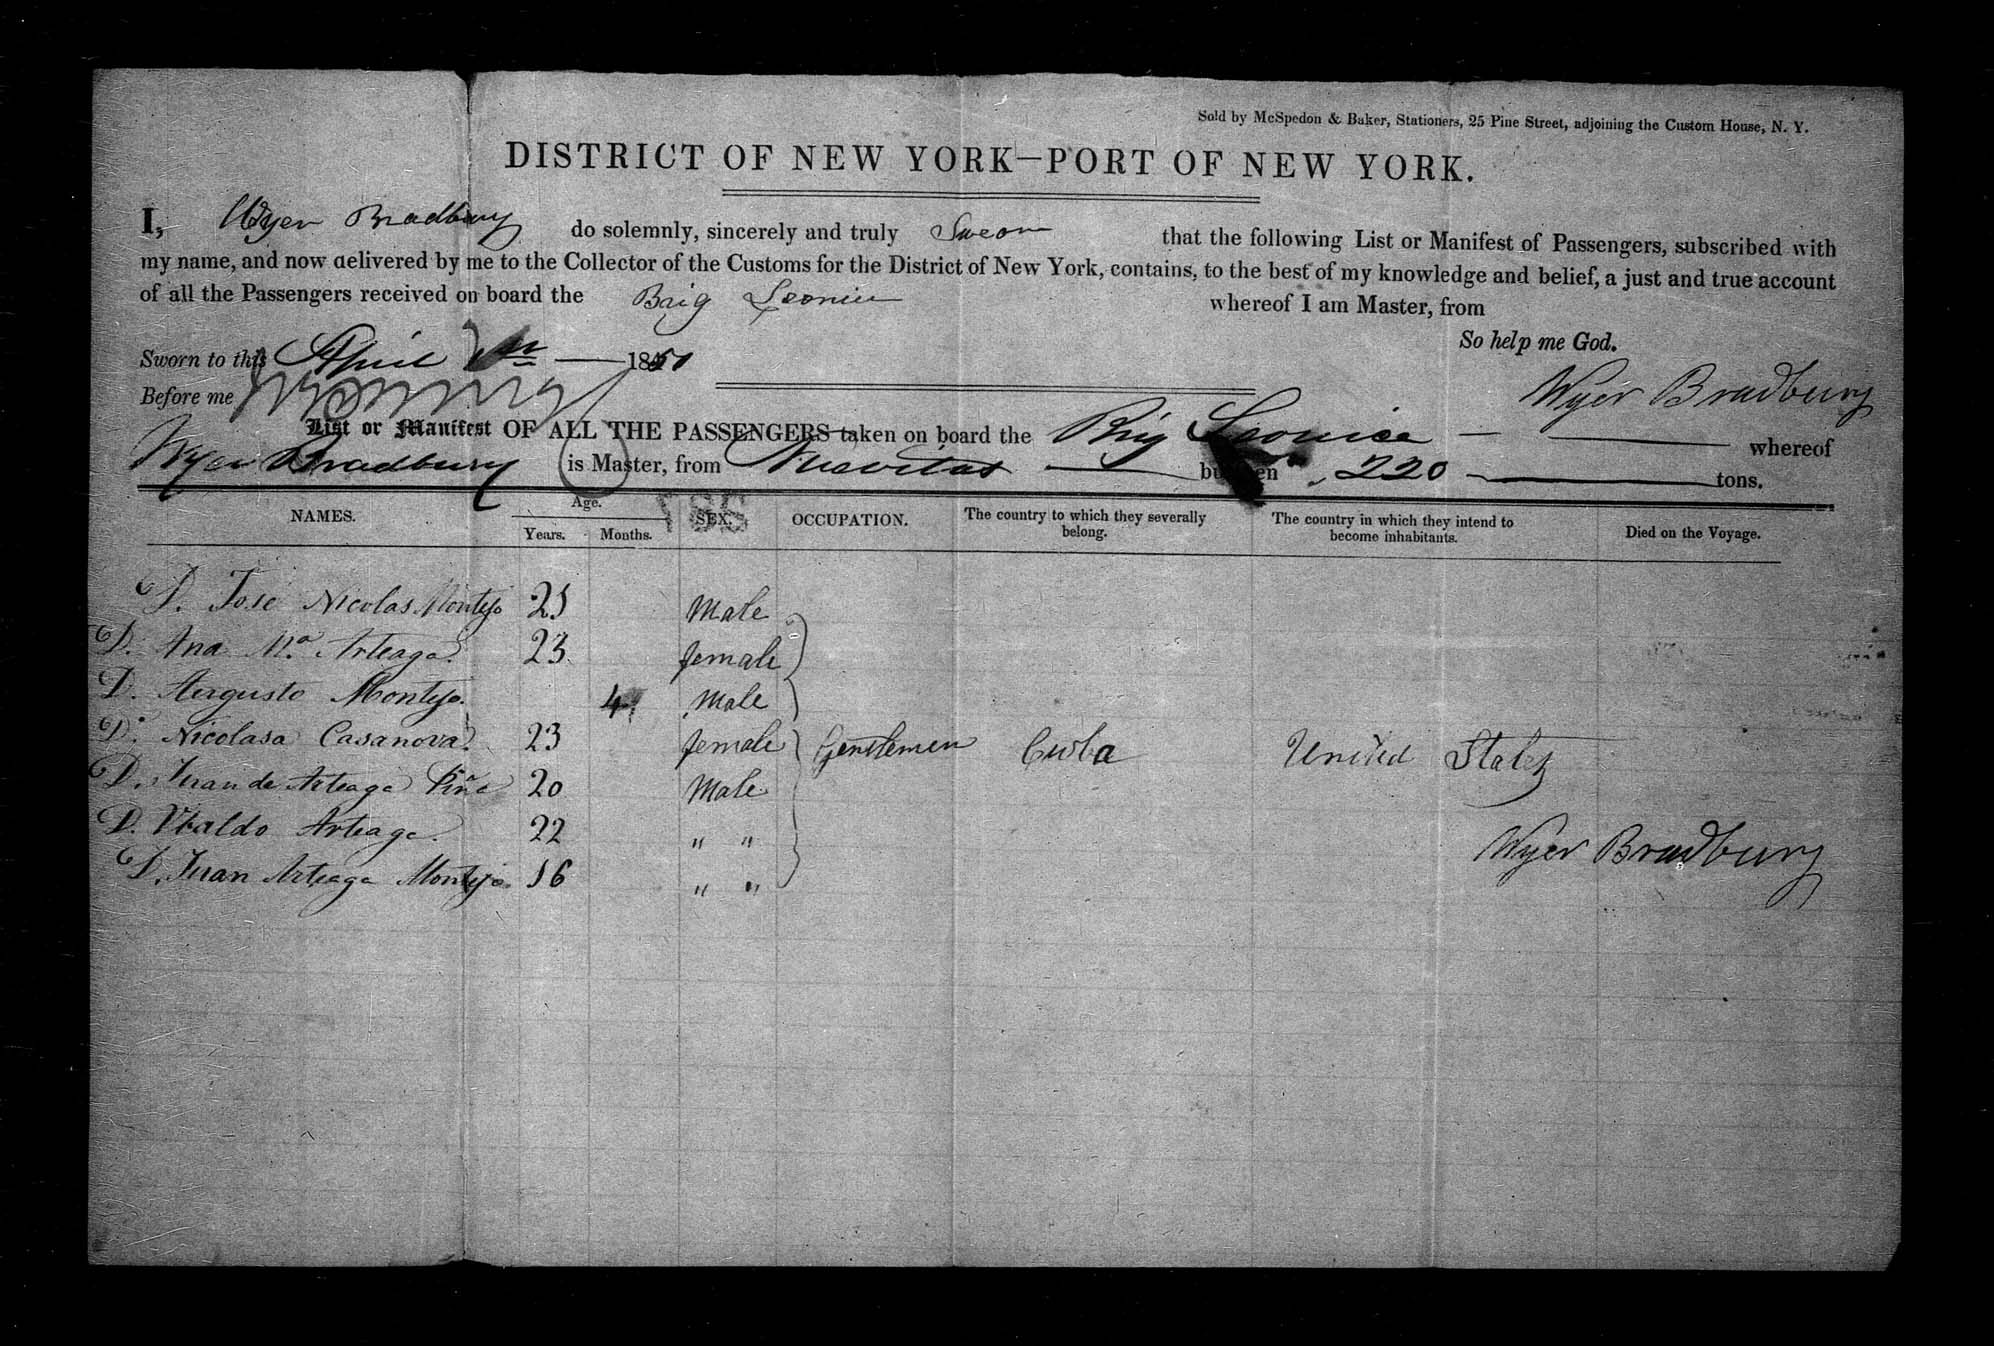 Sold by McSpedon & Baker, Stationers, 25 Pine Street, adjoining the Custom House, N. Y.
DISTRICT OF NEW YORK—PORT OF NEW YORK.
I, Wyer Bradbury do solemnly, sincerely and truly Swear that the following List or Manifest of Passengers, subscribed with
my name, and now delivered by me to the Collector of the Customs for the District of New York, contains, to the best of my knowledge and belief, a just and true account
of all the Passengers received on board the Brig Leonice whereof I am Master, from
So help me God.
Sworn to this April 1850
Before me
Wyer Bradbury
List or Manifest OF ALL THE PASSENGERS taken on board the Brig Leonice — whereof
Wyer Bradbury is Master, from Nuevitas burthen 220 tons.
NAMES. Age. Years. Months. SEX. OCCUPATION. The country to which they severally belong. The country in which they intend to become inhabitants. Died on the Voyage.
D. Jose Nicolas Montejo 25 Male
D. Ana Ma. Arteaga. 23 female
D. Augusto Montejo. 4 Male
D. Nicolasa Casanova. 23 female Gentlemen Cuba United States
D. Juan de Arteaga Piña 20 Male
D. Ubaldo Arteaga. 22 " "
Wyer Bradbury
D. Juan Arteaga Montejo. 16 " "